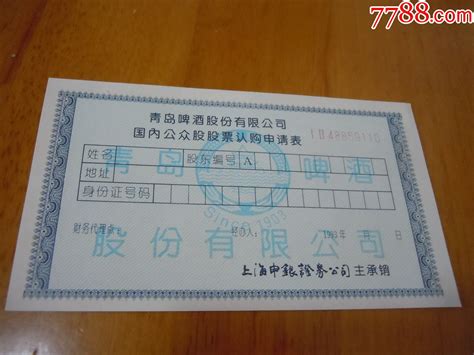 7788.com
青岛啤酒股份有限公司
国内公众股股票认购申请表
姓名 股东编号 A
地址
身份证号码
青岛啤酒
Since 1903
财务代理点: 经办人: 1993年 月 日
股份有限公司
上海申银證券公司 主承销